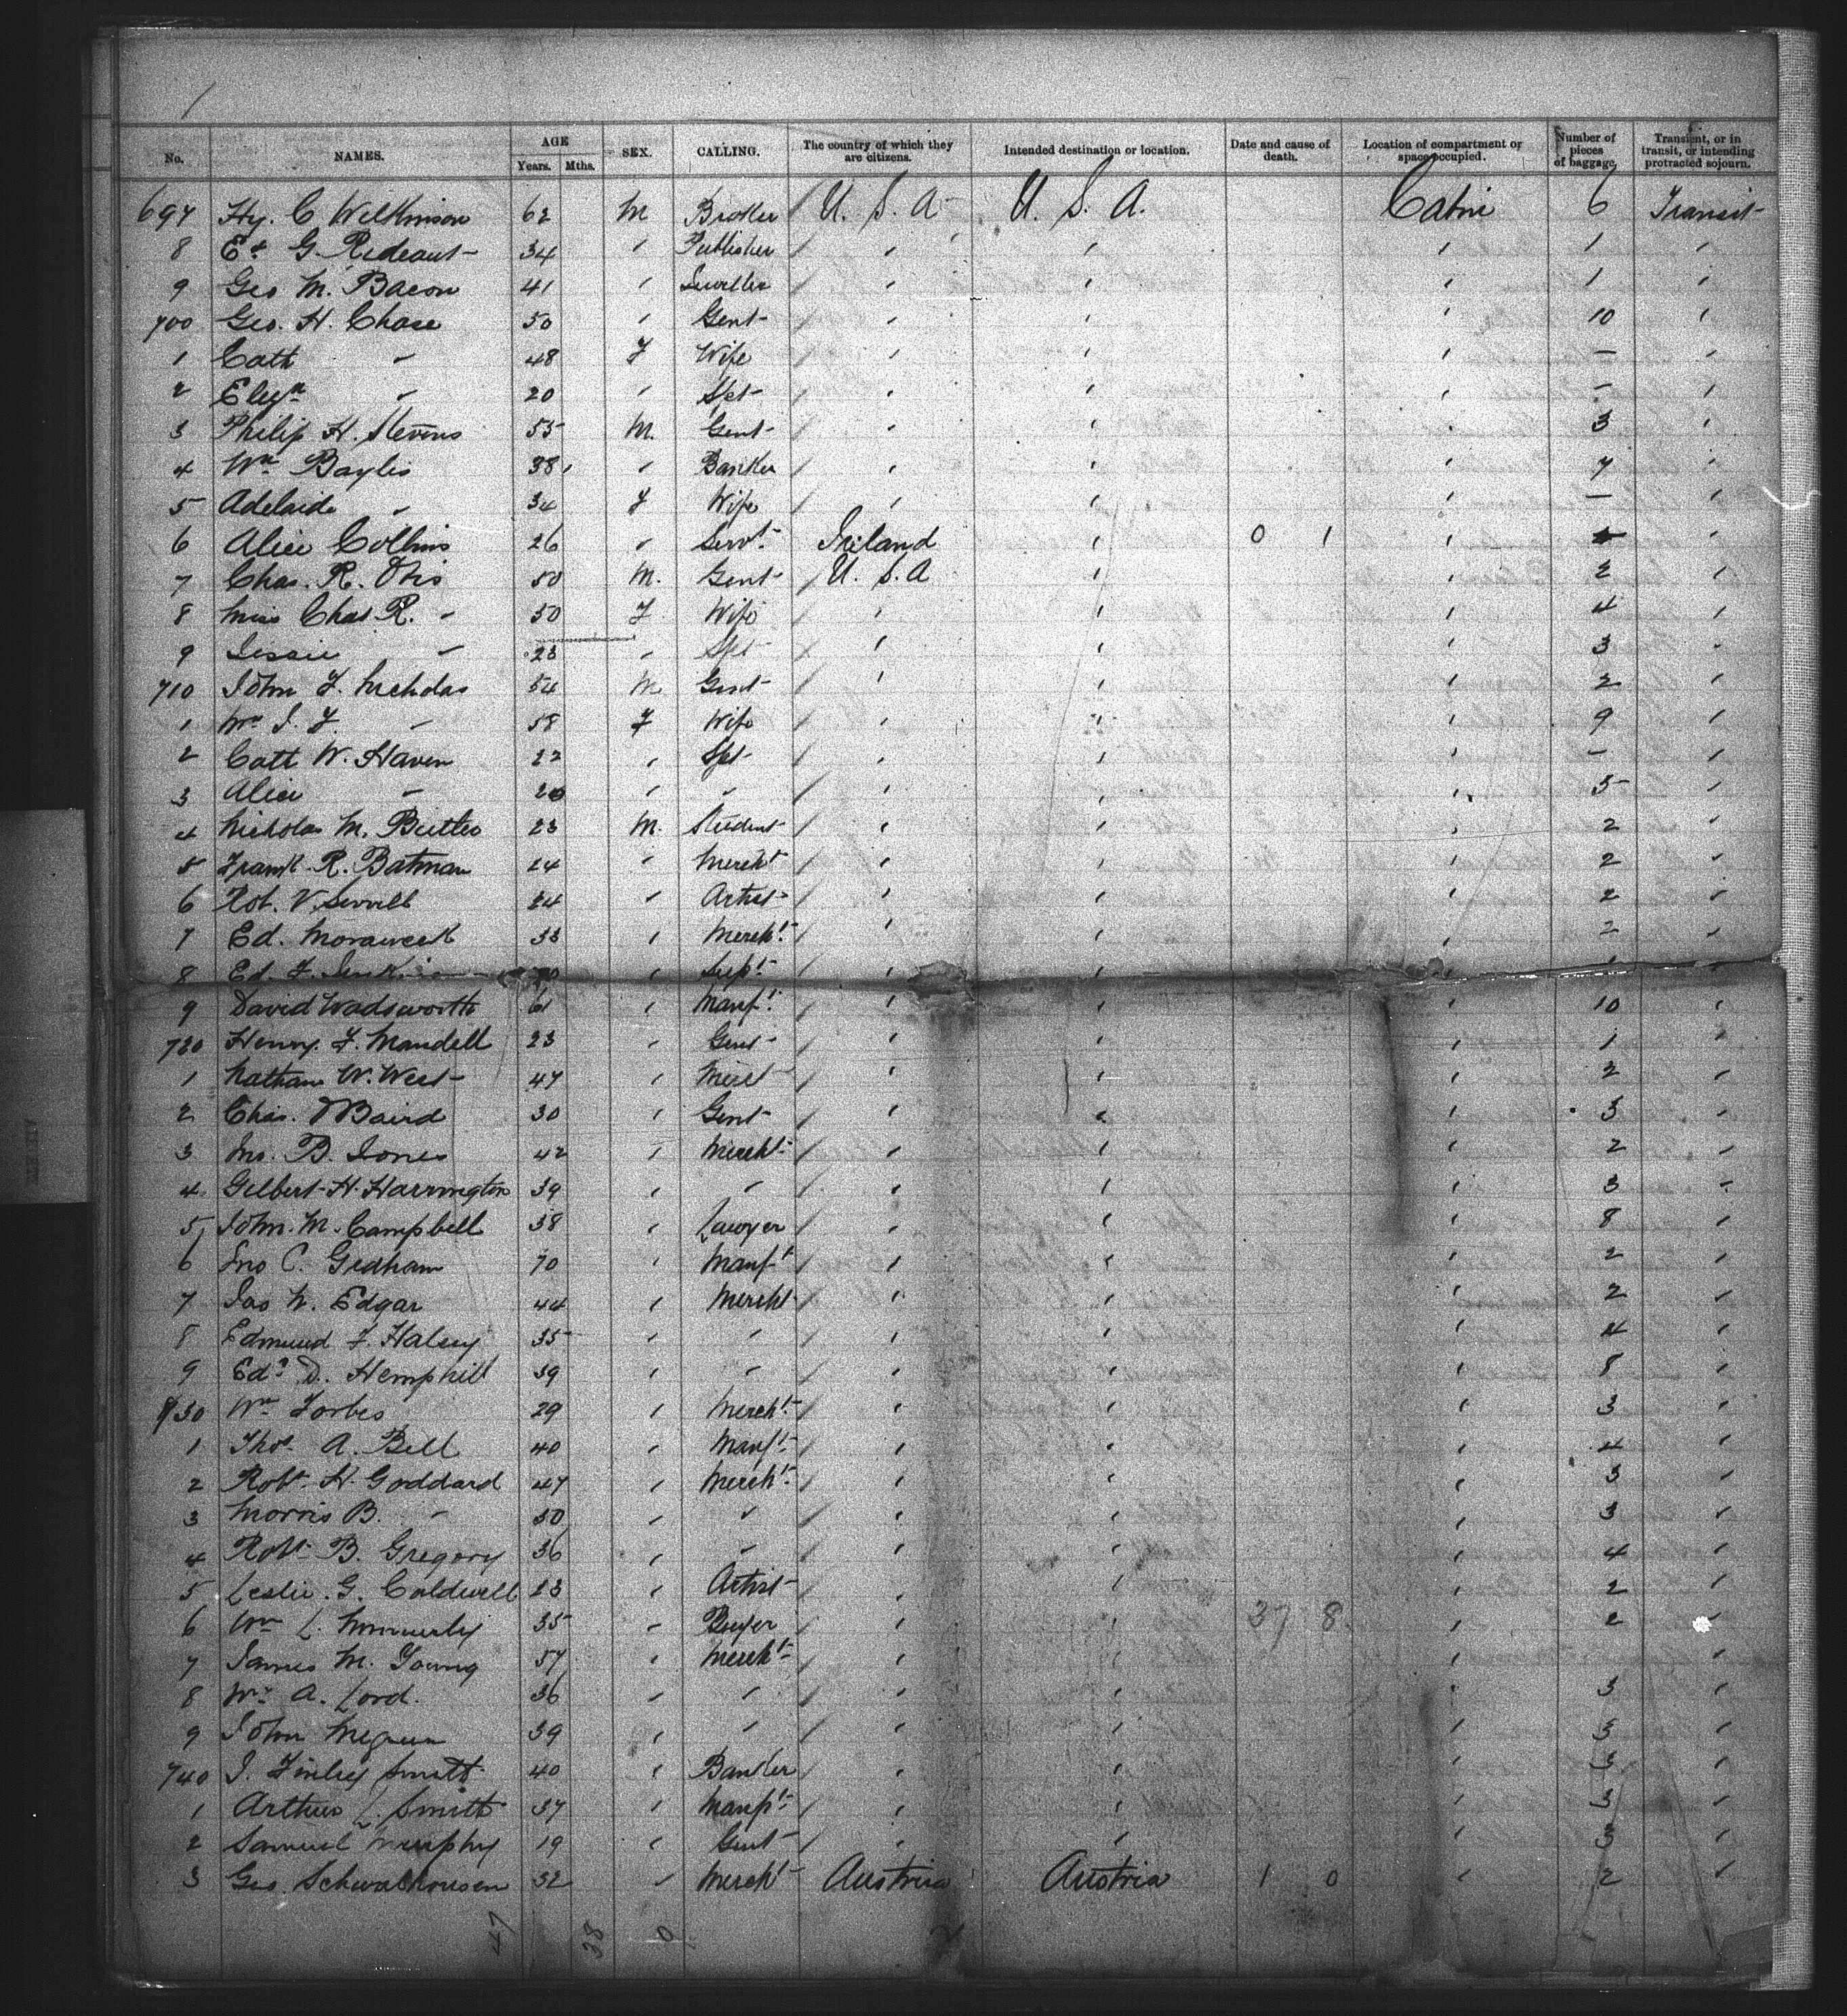 /
No. NAMES. AGE Years. Mths. SEX. CALLING. The country of which they are citizens. Intended destination or location. Date and cause of death. Location of compartment or space occupied. Number of pieces of baggage. Transient, or in transit, or intending protracted sojourn.
697 Hy. C Wilkinson 62 M Broker / U. S. A U. S. A. Cabin 6 Transit
8 Ed G. Rideout 34 " Publisher / " " " 1 "
9 Geo M. Bacon 41 " Jeweller / " " " 1 "
700 Geo. H. Chase 50 " Gent / " " " 10 "
1 Cath " 48 F Wife / " " " — "
2 " 20 " Spt / " " " — "
3 Philip H. Stevens 55 M. Gent / " " " 3 "
4 Wm Baylis 38 " Banker / " " " 7 "
5 Adelaide " 34 F Wife / " " " — "
6 Alice Collins 26 " Servt Ireland " 0 1 " "
7 Chas. R. Otis 50 M. Gent / U. S. A " " 2 "
8 Miss Chas R. " 50 F Wife / " " " 4 "
9 Jessie " 23 " Spt / " " " 3 "
710 John F. Nicholas 54 M Gent / " " " 2 "
1 Mrs J. F. " 58 F Wife / " " " 9 "
2 Cath W. Haven 22 " Spt / " " " — "
3 Alice " 20 " " / " " " 5 "
4 Nicholas M. Butler 23 M. Student / " " " 2 "
5 Frank R. Batman 24 " Mercht / " " " 2 "
6 Rob. V. Sewell 24 " Artist / " " " 2 "
7 Ed. Moraweck 33 " Mercht / " " " 2 "
8 Ed. F. " Supt / " " " "
9 David Wadsworth 61 " Manft / " " " 10 "
720 Henry F. Mandell 23 " Gent / " " " 1 "
1 Nathan W. West 47 " Mercht / " " " 2 "
2 Chas. Baird 30 " Gent / " " " 3 "
3 Jno. B. Jones 42 " Mercht / " " " 2 "
4 Gilbert H. Harrington 39 " " / " " " 3 "
5 John. M. Campbell 38 " Lawyer / " " " 8 "
6 Jno C. Gedham 70 " Manft / " " " 2 "
7 Jas N. Edgar 44 " Mercht / " " " 2 "
8 Edmund F. Halsey 35 " " / " " " 4 "
9 Edw D. Hemphill 39 " " / " " " 8 "
730 Wm Forbes 29 " Mercht / " " " 3 "
1 Thos A. Bell 40 " Manft / " " " 4 "
2 Robt. H. Goddard 47 " Mercht / " " " 3 "
3 Morris B. " 50 " " / " " " 3 "
4 Robt B. Gregory 36 " " / " " " 4 "
5 Leslie G. Coldwell 23 " Artist / " " " 2 "
6 Wm L. 35 " Buyer / " " 37 8 " 2
7 James M. Young 57 " Mercht / " " " "
8 Wm A. Lord. 36 " " / " " " 3 "
9 John 39 " " / " " " 3 "
740 J. Finley Smith 40 " Banker / " " " 3 "
1 Arthur L. Smith 37 " Manft / " " " 3 "
2 Samuel Murphy 19 " Gent / " " " 3 "
3 Geo. Schwalhousen 32 " Mercht Austria Austria 1 0 " 2 "
47 38 0 2